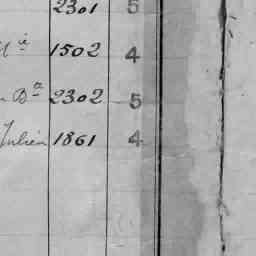 2301 5
Mie 1502 4
Ba 2302 5
Julien 1861 4